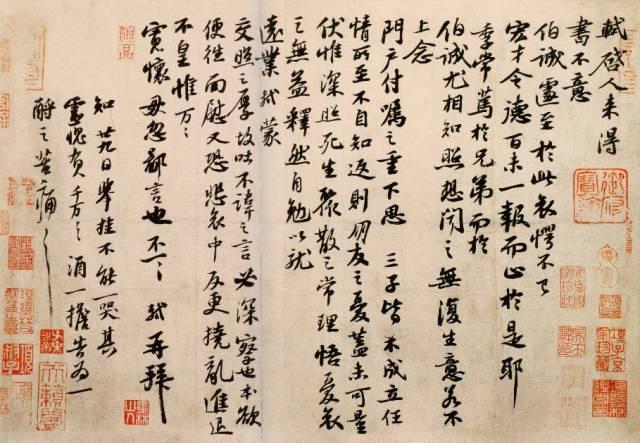 軾啓人來得
書不意
伯誠遽至於此哀愕不已
宏才令德百未一報而止於是耶
季常篤於兄弟而於
伯誠尤相知照想聞之無復生意若不
上念
門户付囑之重下思三子皆不成立任
情所至不自知返則朋友之憂蓋未可量
伏惟深照死生聚散之常理悟憂哀
之無益釋然自勉以就
遠業軾蒙
交照之厚故吐不諱之言必深察也本欲
便往面慰又恐悲哀中反更撓亂進退
不皇惟万〻
寬懷毋忽鄙言也不一一軾再拜
知廿九日舉挂不能一哭其
靈愧負千万〻酒一擔告為一
酹之苦痛〻